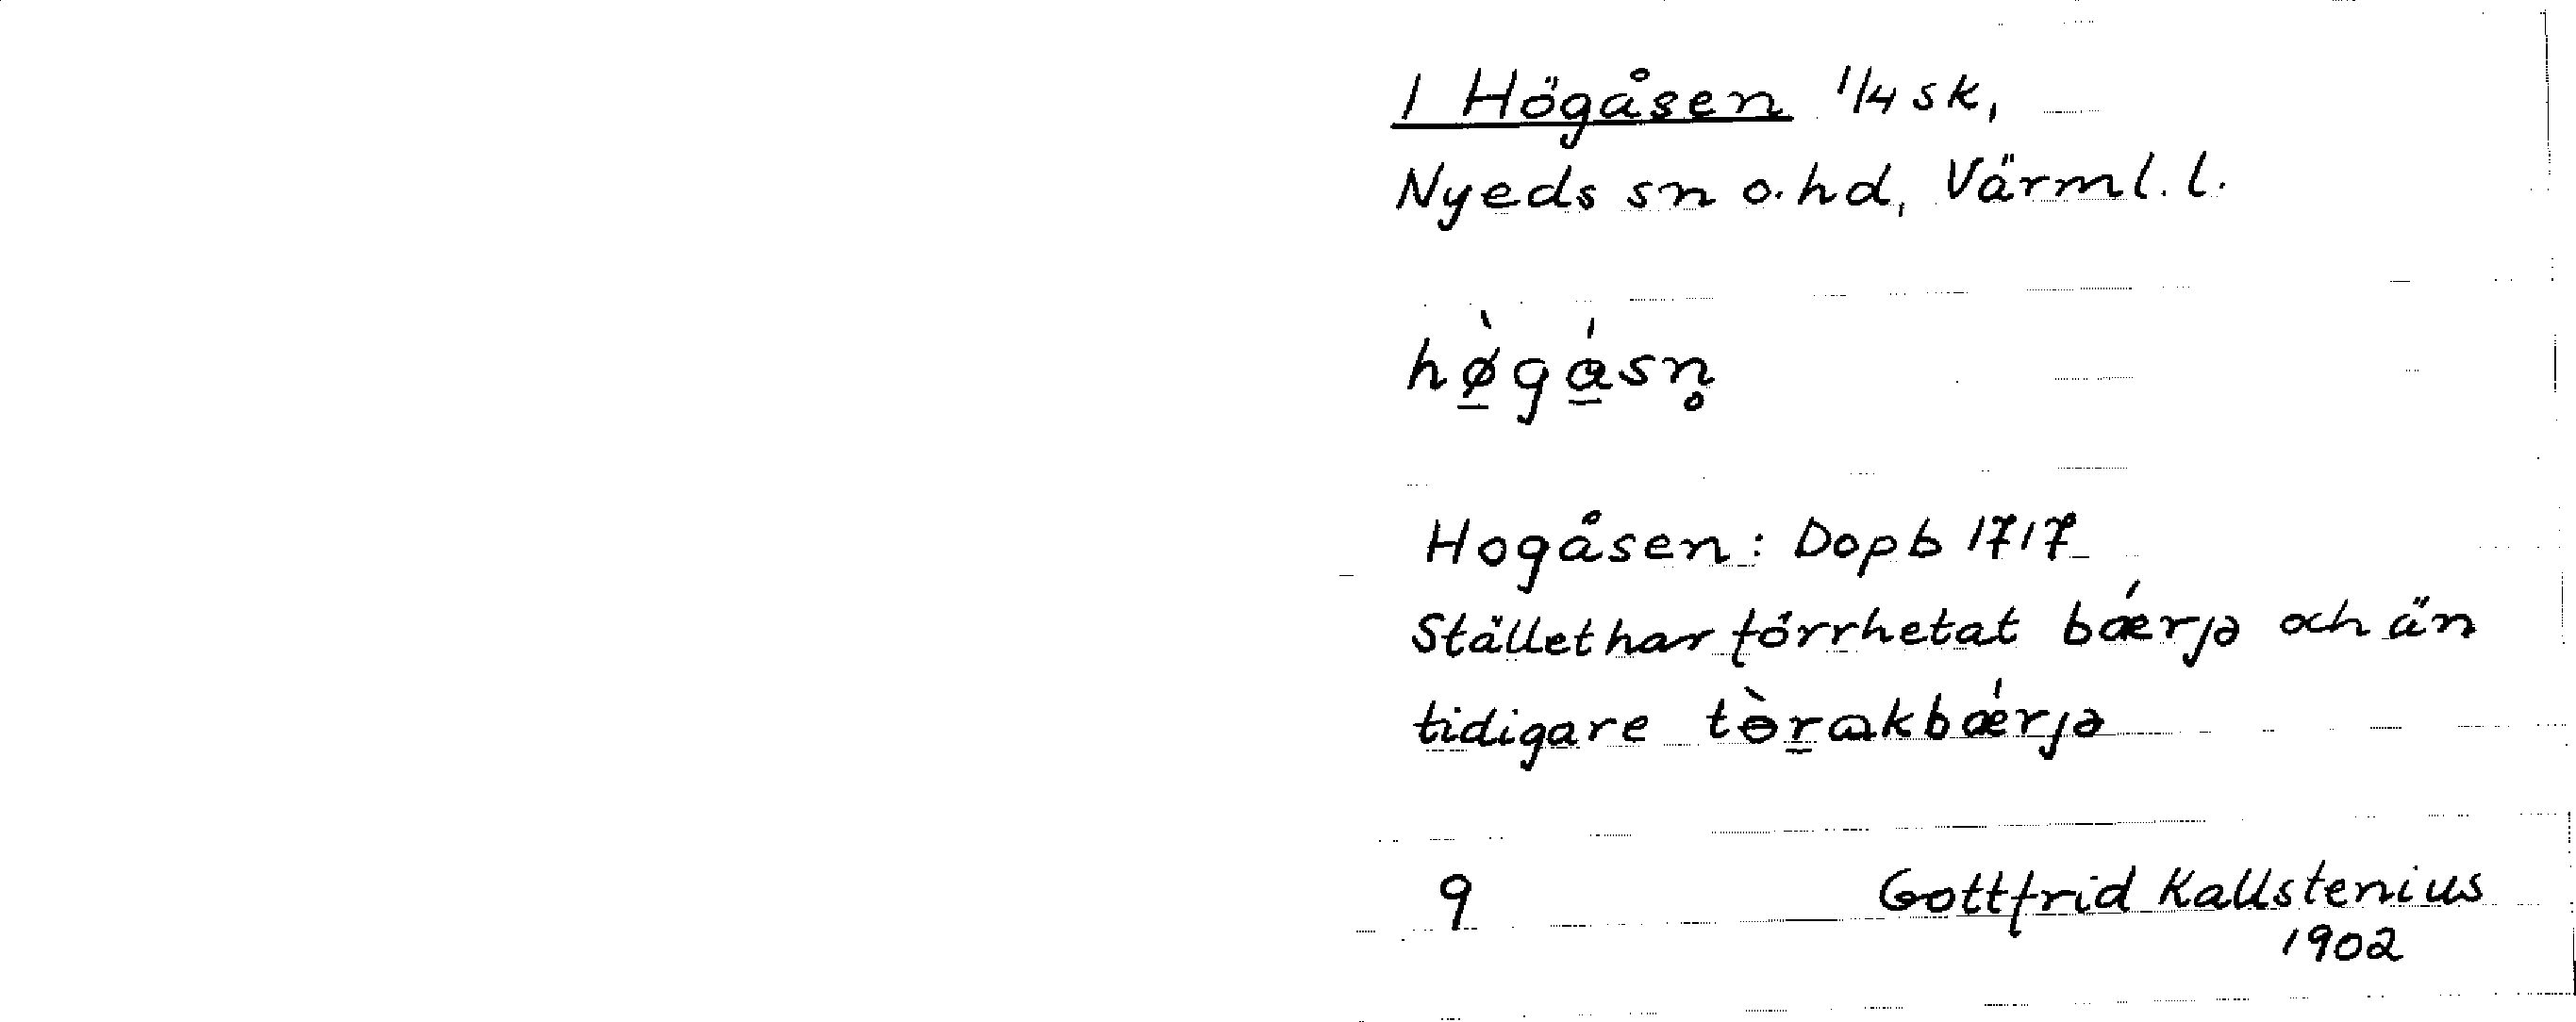 1 Högåsen 1/4 sk,
Nyeds sn o. hd, Värml. l.
hø̱̀gá̱sn̥
Hogåsen: Dopb 1717
Stället har förr hetat bǽrjə och än
tidigare tɵ̀ṟakbǽrjə
9 Gottfrid Kallstenius
1902